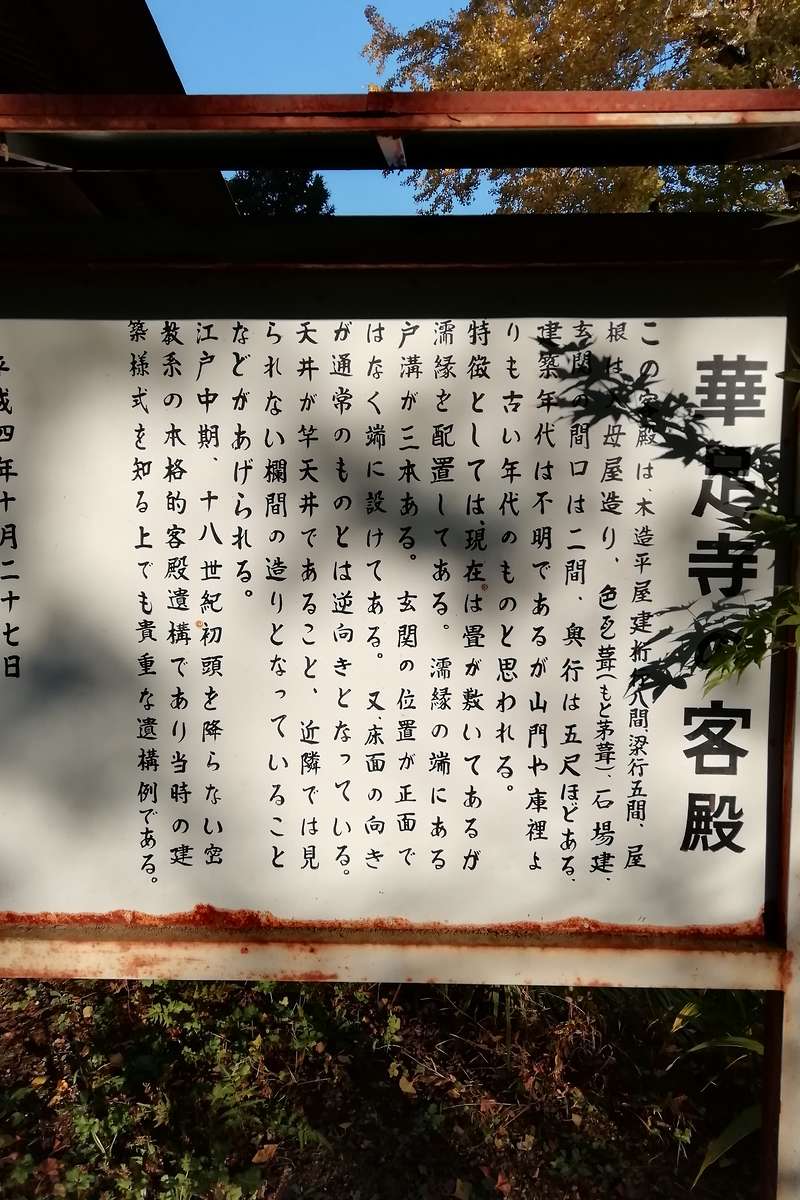 華足寺の客殿
この客殿は、木造平屋建桁行八間、梁行五間、屋
根は入母屋造り、色瓦葺(もと茅葺)、石場建、
玄関の間口は二間、奥行は五尺ほどある、
建築年代は不明であるが山門や庫裡よ
りも古い年代のものと思われる。
特徴としては、現在は畳が敷いてあるが
濡縁を配置してある。濡縁の端にある
戸溝が三本ある。玄関の位置が正面で
はなく端に設けてある。又、床面の向き
が通常のものとは逆向きとなっている。
天井が竿天井であること、近隣では見
られない欄間の造りとなっていること
などがあげられる。
江戸中期、十八世紀初頭を降らない密
教系の本格的客殿遺構であり当時の建
築様式を知る上でも貴重な遺構例である。
平成四年十月二十七日